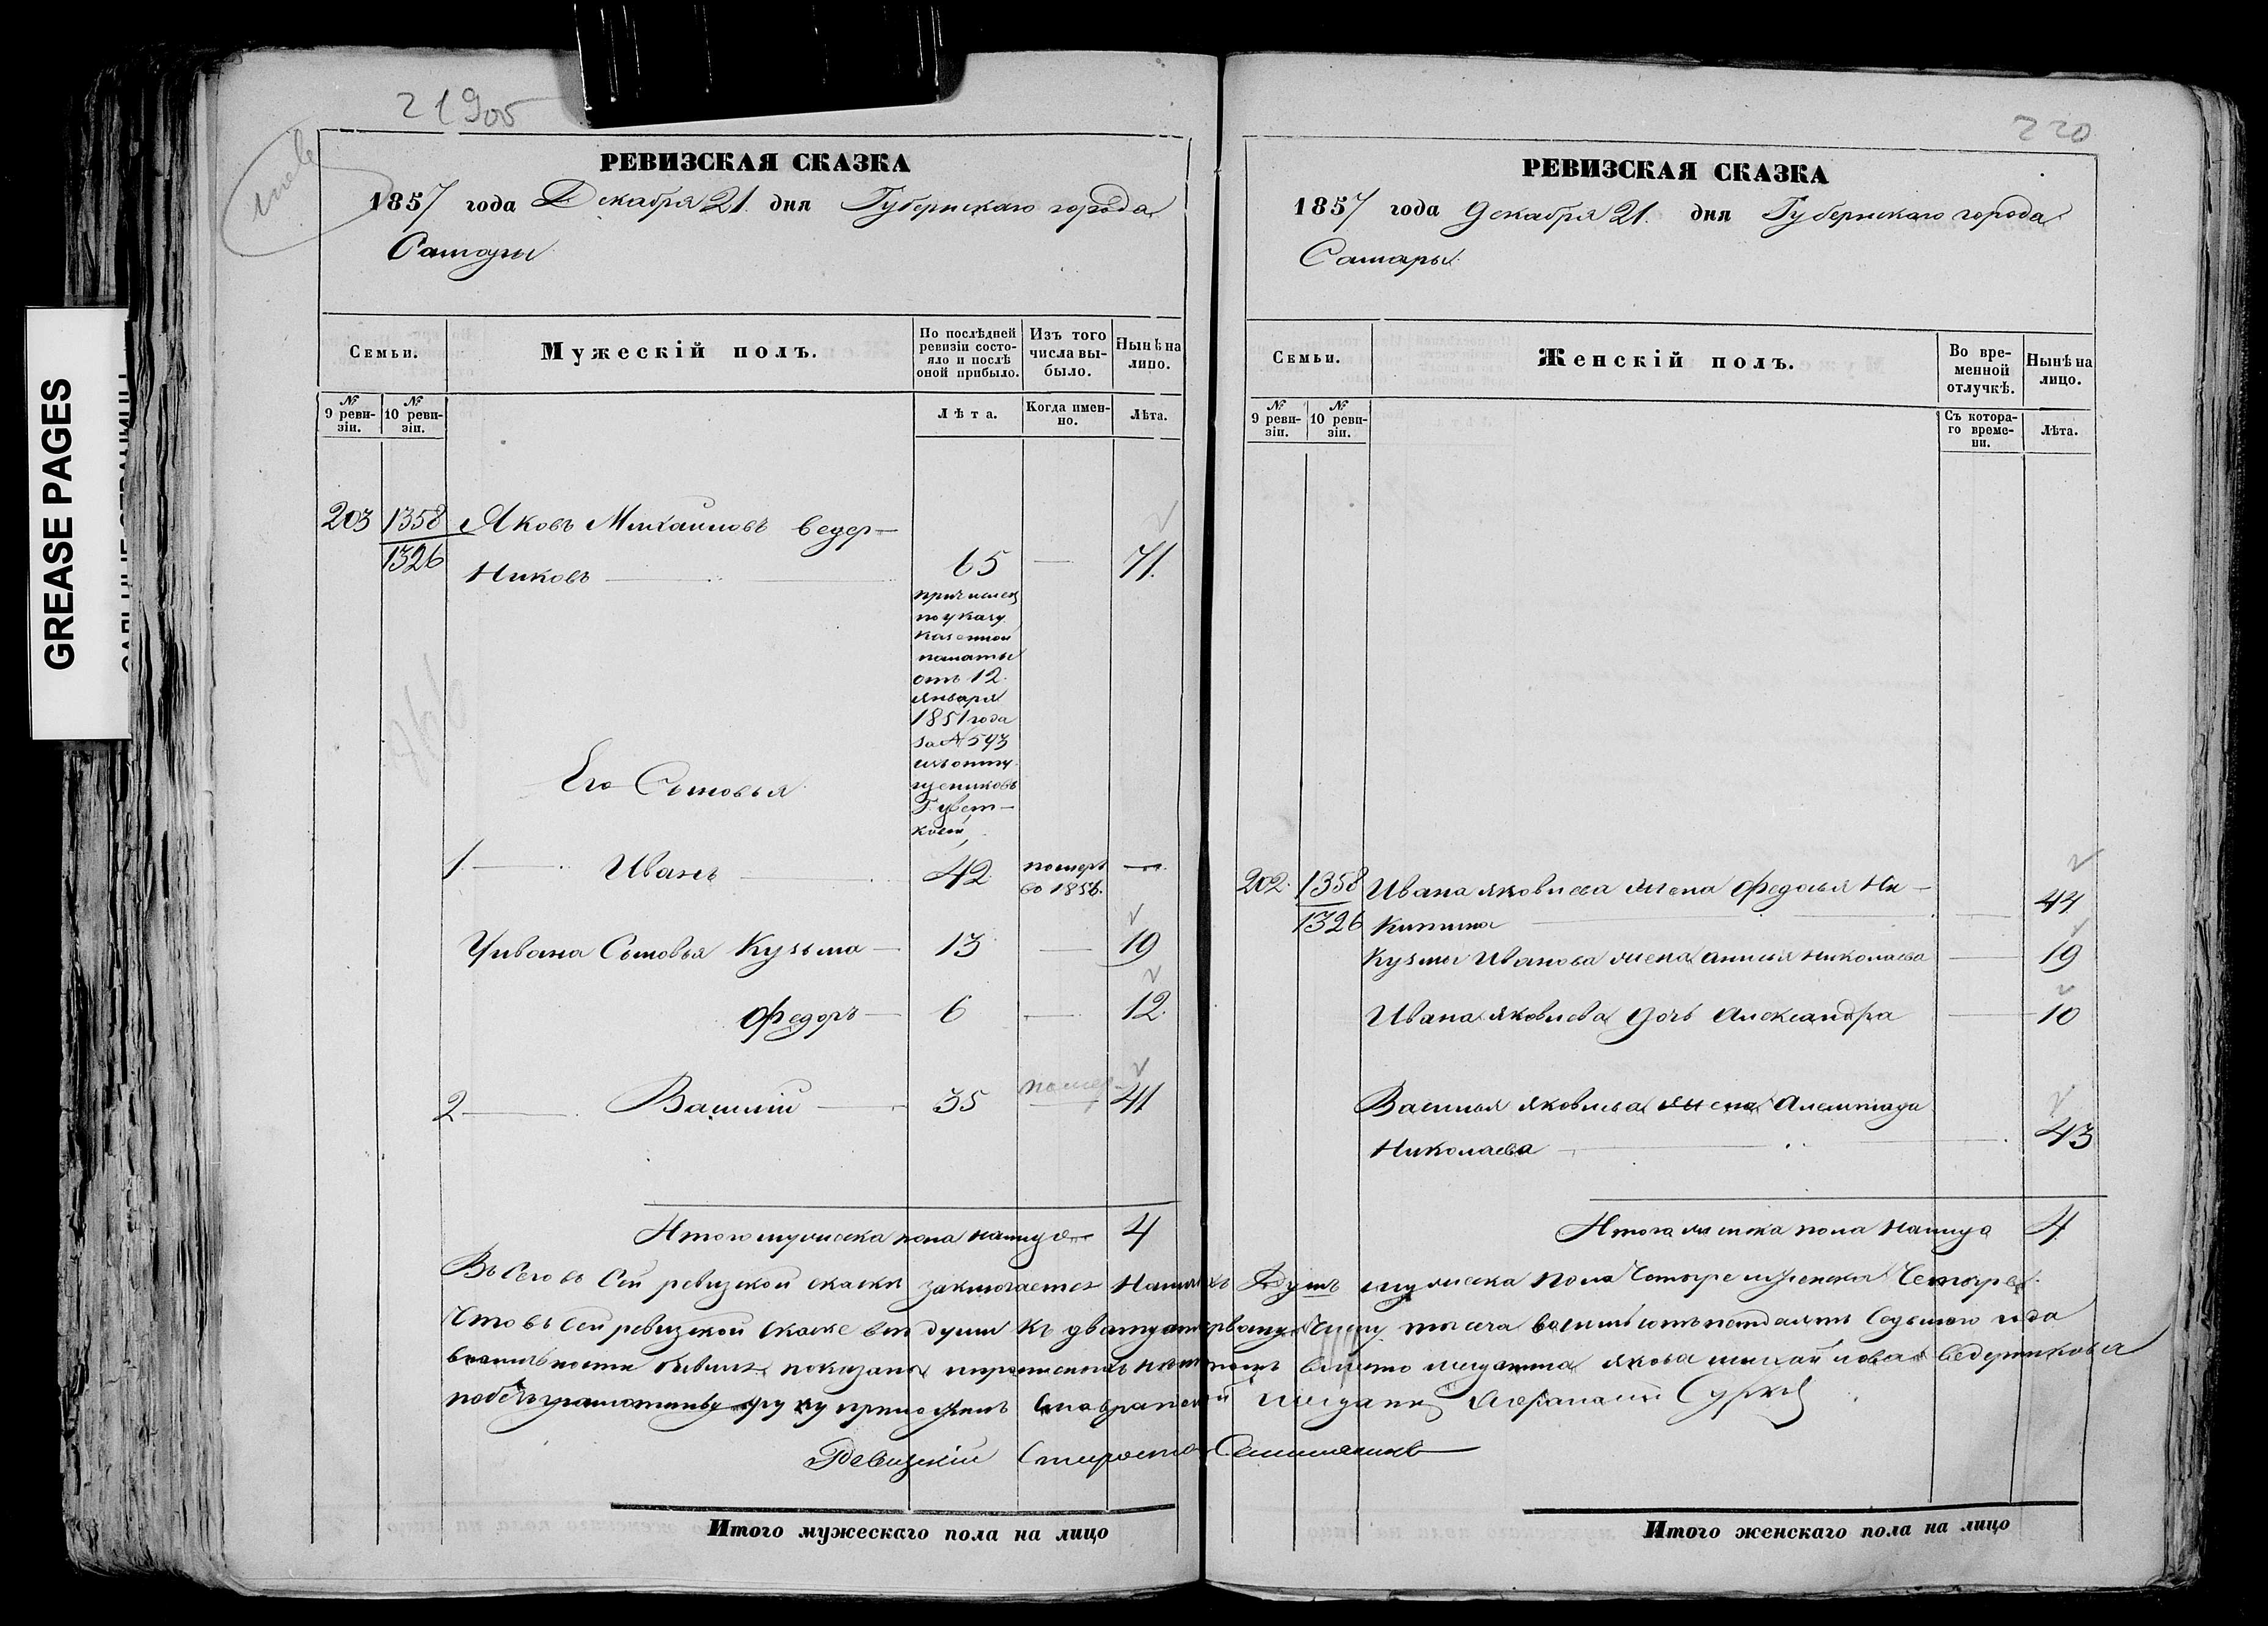 GREASE PAGES
219об
220
РЕВИЗСКАЯ СКАЗКА
1857 года Декабря 21. дня Губернскаго города
Самары
Семьи.
Мужескій полъ.
По послѣдней ревизіи состояло и послѣ оной прибыло.
Изъ того числа выбыло.
Нынѣ на лицо.
№ 9 ревизіи.
№ 10 ревизіи.
Лѣта.
Когда именно.
Лѣта.
203 1358 Яковъ Михаиловъ ведер-
1326 Никовъ 65 — 71.
причислен
по указу
казенной
палаты
отъ 12
января
1851 года
за № 593
изъ отпу
щениковъ
Его Сыновья
1 Иванъ 42 померъ —
во 1856.
Уивана Сыновья Кузьма 13 — 19
Федоръ 6 — 12.
2 Василій 35 помер 41
Итого мужеска пола налицо 4
РЕВИЗСКАЯ СКАЗКА
1857 года Декабря 21. дня Губернскаго города
Самары
Семьи.
Женскій полъ.
Во временной отлучкѣ.
Нынѣ на лицо.
№ 9 ревизіи.
№ 10 ревизіи.
Съ котораго времени.
Лѣта.
202. 1358 Ивана яковлева жена Федосья Ни-
1326 Китина — 44
Кузмы Иванова жена анисья николаева — 19
Ивана яковлева дочь Александра — 10
Василья яковлева жена Алекптада
Николаева — 43
Итого женска пола налицо 4
Всего въ сей ревизской сказки заключается Налицо Душъ мужеска пола Четыре женска Четыре
Что въ сей ревизской скаске все души къ двадцать первому Числу тысеча восимьсотъ пендесятъ Седьмого года
показаны вместо мещанина якова михайлова Ведерникова
руку приложилъ мещанинъ Сурков
Ревизскій Староста
Итого мужескаго пола на лицо
Итого женскаго пола на лицо